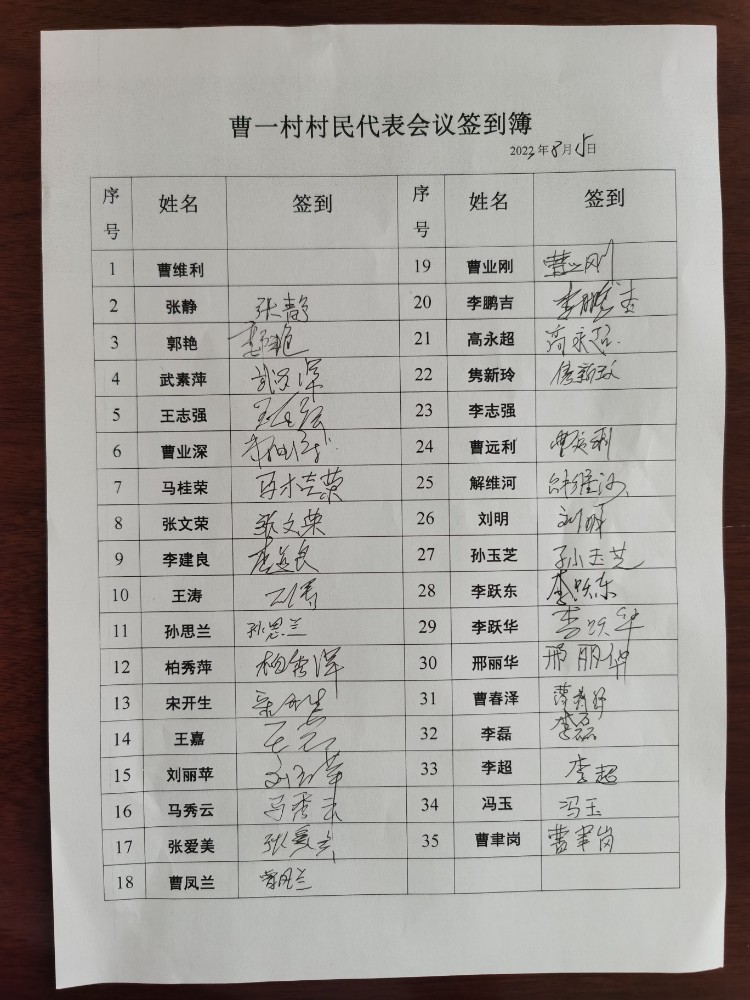 曹一村村民代表会议签到簿
2022年8月15日
序号 姓名 签到 序号 姓名 签到
1 曹维利 19 曹业刚 曹业刚
2 张静 张静 20 李鹏吉 李鹏吉
3 郭艳 郭艳 21 高永超 高永超
4 武素萍 武素萍 22 隽新玲 隽新玲
5 王志强 王志强 23 李志强
6 曹业深 曹业深 24 曹远利 曹远利
7 马桂荣 马桂荣 25 解维河 解维河
8 张文荣 张文荣 26 刘明 刘明
9 李建良 李建良 27 孙玉芝 孙玉芝
10 王涛 王涛 28 李跃东 李跃东
11 孙思兰 孙思兰 29 李跃华 李跃华
12 柏秀萍 柏秀萍 30 邢丽华 邢丽华
13 宋开生 宋开生 31 曹春泽 曹春泽
14 王嘉 王嘉 32 李磊 李磊
15 刘丽苹 刘丽苹 33 李超 李超
16 马秀云 马秀云 34 冯玉 冯玉
17 张爱美 张爱美 35 曹聿岗 曹聿岗
18 曹凤兰 曹凤兰